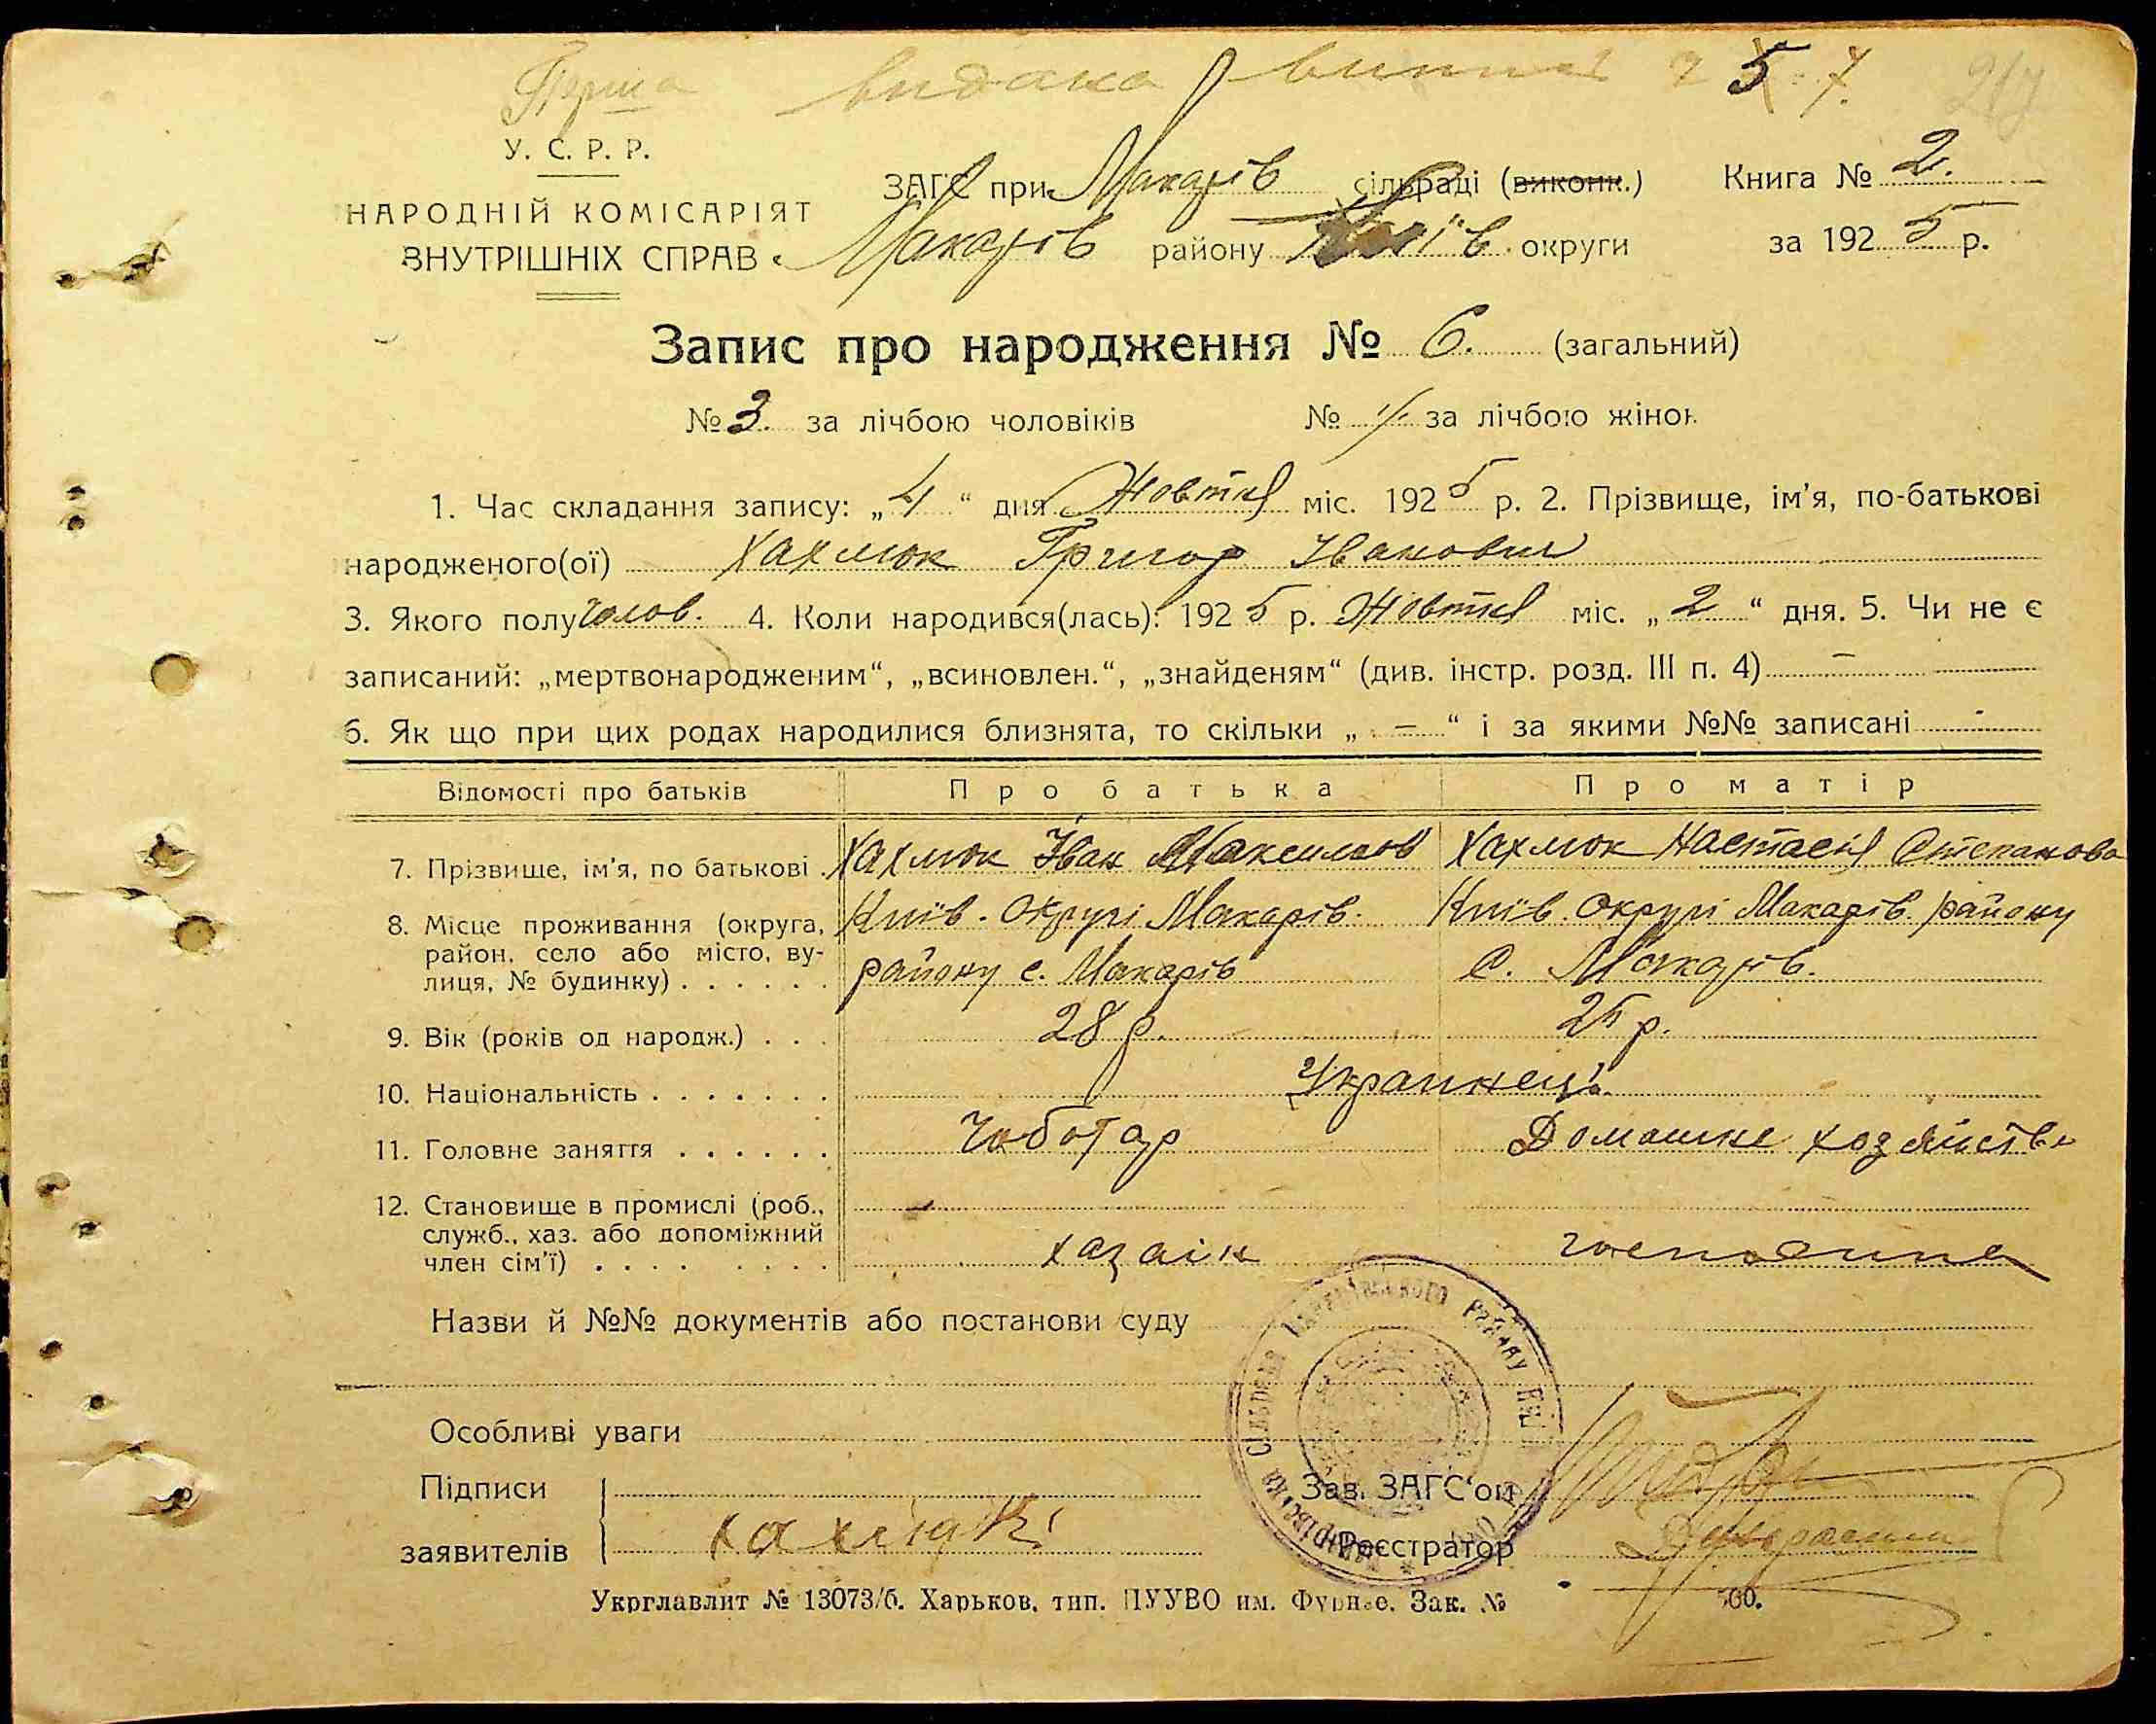 видана
5
У. С. Р. Р.
НАРОДНІЙ КОМІСАРІЯТ
ВНУТРІШНІХ СПРАВ
ЗАГС при Макарів сільраді (виконк.)
Макарів району Київ округи
Книга № 2.
за 1925 р.
Запис про народження № 6. (загальний)
№ 3. за лічбою чоловіків № за лічбою жінок
1. Час складання запису: „4“ дня Жовтня міс. 1925 р. 2. Прізвище, ім'я, по-батькові
народженого(ої) Хахлюк Григор Іванович
3. Якого полу чолов. 4. Коли народився(лась): 1925 р. Жовтня міс. „2“ дня. 5. Чи не є
записаний: „мертвонародженим“, „всиновлен.“, „знайденям“ (див. інстр. розд. III п. 4) –
6. Як що при цих родах народилися близнята, то скільки „ – “ і за якими №№ записані -
Відомості про батьків Про батька Про матір
7. Прізвище, ім'я, по батькові . Хахлюк Іван Максимов Хахлюк Настасія Степанова
8. Місце проживання (округа, Київ. Округі Макарів. Київ. Округі Макарів. району
район, село або місто, ву- району с. Макарів С. Макарів.
лиця, № будинку) . . . . . .
9. Вік (років од народж.) . . . 28 р. 25 р.
10. Національність . . . . . . . Украинець
11. Головне заняття . . . . . . Чоботар Домашне хозяйство
12. Становище в промислі (роб.,
служб., хаз. або допоміжний
член сім'ї) . . . . . . . . хазаін господиня
Назви й №№ документів або постанови суду
Особливі уваги
Підписи
заявителів
Зав. ЗАГС'ом
Реєстратор
Укрглавлит № 13073/б. Харьков, тип. ПУУВО им. Фрунзе. Зак. №